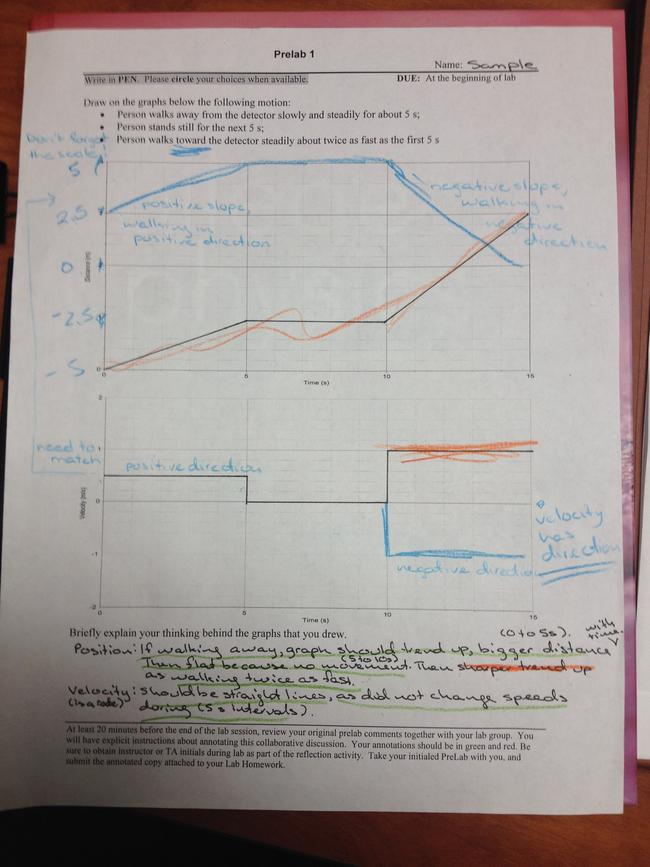 Prelab 1
Name: Sample
Write in PEN. Please circle your choices when available. DUE: At the beginning of lab
Draw on the graphs below the following motion:
• Person walks away from the detector slowly and steadily for about 5 s;
• Person stands still for the next 5 s;
• Person walks toward the detector steadily about twice as fast as the first 5 s
Don't forget
the scale!
5
2.5
0
-2.5
-5
0
Distance (m)
positive slope,
walking in
positive direction
negative slope,
walking in
negative
direction
0 5 10 15
Time (s)
2
1
0
-1
-2
Velocity (m/s)
need to
match
positive direction
negative direction
velocity
has
direction
0 5 10 15
Time (s)
Briefly explain your thinking behind the graphs that you drew.
(0 to 5s). with time.
Position: If walking away, graph should trend up, bigger distance
(5 to 10s)
Then flat because no movement. Then sharper trend up
as walking twice as fast.
Velocity: should be straight lines, as did not change speeds
(is a rate) during (5 s intervals).
At least 20 minutes before the end of the lab session, review your original prelab comments together with your lab group. You
will have explicit instructions about annotating this collaborative discussion. Your annotations should be in green and red. Be
sure to obtain instructor or TA initials during lab as part of the reflection activity. Take your initialed PreLab with you, and
submit the annotated copy attached to your Lab Homework.